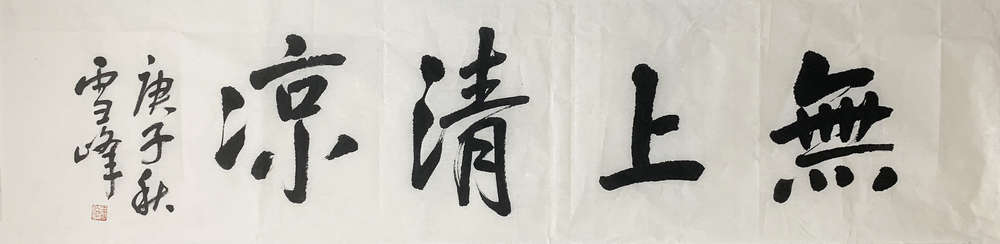 無上清凉
庚子秋
雪峰